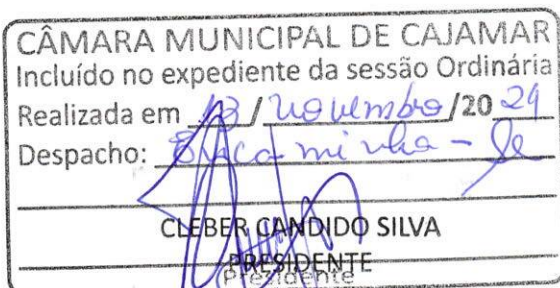 CÂMARA MUNICIPAL DE CAJAMAR
Incluído no expediente da sessão Ordinária
Realizada em 13 / novembro /20 24
Despacho: Encaminha-se
CLEBER CANDIDO SILVA
PRESIDENTE
Presidente